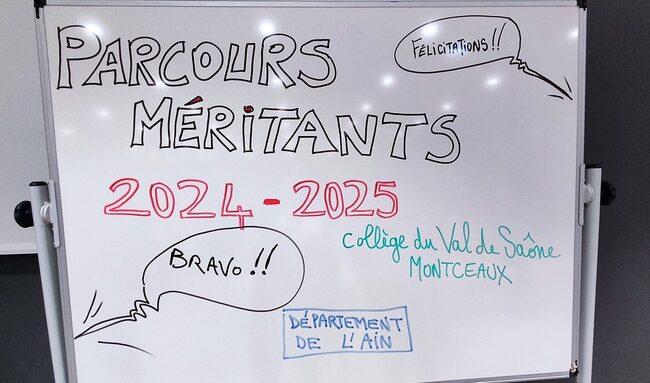 PARCOURS
MÉRITANTS
FÉLICITATIONS!!
2024-2025
Collège du Val de Saône
MONTCEAUX
BRAVO!!
DÉPARTEMENT
DE L'AIN